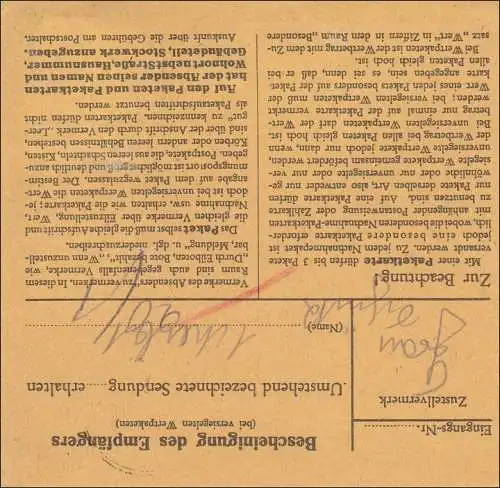 Zur Beachtung!
Mit einer Paketkarte dürfen bis 3 Pakete
versandt werden. Zu jedem Nachnahmepaket ist
jedoch eine besondere Paketkarte erforder-
lich, wobei die besonderen Nachnahme-Paketkarten
mit anhängender Postanweisung oder Zahlkarte
zu benutzen sind. Auf eine Paketkarte dürfen
nur Pakete derselben Art, also entweder nur ge-
wöhnliche oder nur unversiegelte oder nur ver-
siegelte Wertpakete gemeinsam befördert werden,
unversiegelte Wertpakete jedoch nur dann, wenn
der Wertbetrag bei allen Paketen gleich hoch ist.
Bei unversiegelten Wertpaketen darf der Wert-
betrag nur einmal auf der Paketkarte vermerkt
werden; bei versiegelten Wertpaketen muß der
Wert eines jeden Pakets besonders auf der Paket-
karte angegeben sein, es sei denn, daß er bei
allen Paketen gleich hoch ist.
Bei Wertpaketen ist der Wertbetrag mit dem Zu-
satz „Wert" in Ziffern in dem Raum „Besondere
Vermerke des Absenders" zu vermerken. In diesem
Raum sind auch gegebenenfalls Vermerke, wie
„Durch Eilboten, Bote bezahlt", „Wenn unzustell-
bar, Meldung" u. dgl. niederzuschreiben.
Das Paket selbst muß die gleiche Aufschrift und
die gleichen Vermerke über Eilzustellung, Wert,
Nachnahme usw. erhalten wie die Paketkarte; je-
doch ist bei unversiegelten Wertpaketen die Wert-
angabe auf dem Paket wegzulassen. Der Bestim-
mungsort ist möglichst groß und deutlich anzu-
geben. Postpakete, die aus leeren Schachteln, Kisten,
Körben oder andern leeren Behältnissen bestehen,
sind über der Anschrift durch den Vermerk „Leer-
gut" zu kennzeichnen. Paketkarten dürfen nicht
als Paketaufschriften benutzt werden.
Auf den Paketen und Paketkarten
hat der Absender seinen Namen und
Wohnort nebst Straße, Hausnummer,
Gebäudeteil, Stockwerk anzugeben.
Auskunft über die Gebühren am Postschalter.
Eingangs-Nr.
Zustellvermerk
Bescheinigung des Empfängers
(bei versiegelten Wertpaketen)
Umstehend bezeichnete Sendung erhalten
(Name)